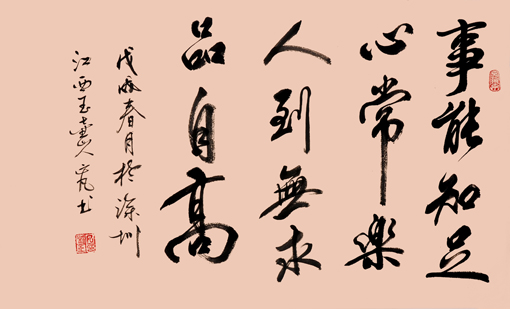 事能知足
心常樂
人到無求
品自高
戊戌春月於深圳
江西玉人书